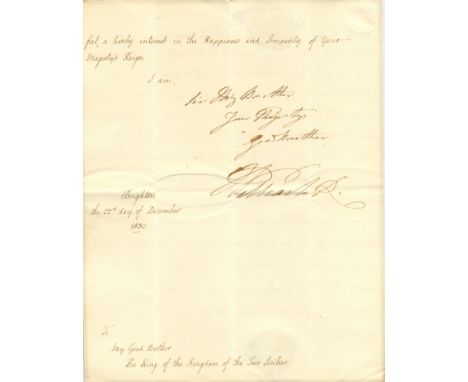 feel a lively interest in the Happiness and Prosperity of Your
Majesty's Reign.
I am,
Sir My Brother
Your Majesty's
Good Brother
William R.
Brighton
the 22d day of December
1830
To
My Good Brother
The King of the Kingdom of the Two Sicilies.